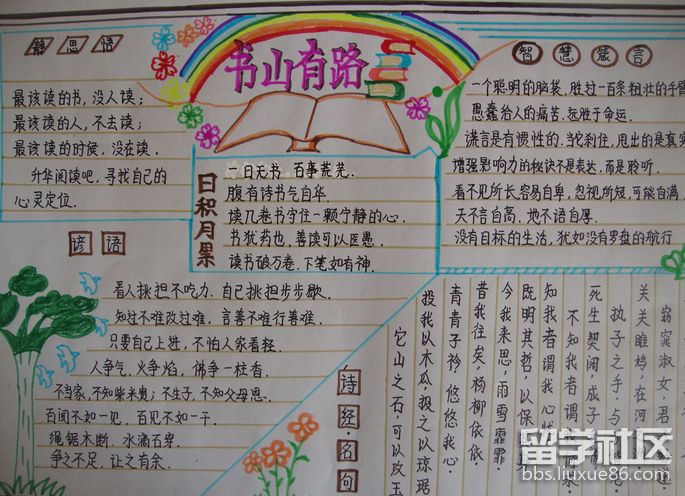 静思语
最该读的书，没人读；
最该读的人，不去读；
最该读的时候，没在读.
升华阅读吧，寻找自己的
心灵定位.
书山有路
智慧箴言
一个聪明的脑袋，胜过一百条粗壮的手臂
愚蠢给人的痛苦，远胜于命运.
谎言是有惯性的.当它刹住，甩出的是真实
增强影响力的秘诀不是表达，而是聆听.
看不见所长，容易自卑，忽视所短，可能自满
天不言自高，地不语自厚.
没有目标的生活，犹如没有罗盘的航行
日积月累
一日无书，百事荒芜.
腹有诗书气自华.
读几卷书守住一颗宁静的心.
书犹药也，善读可以医愚.
读书破万卷，下笔如有神.
谚语
看人挑担不吃力，自己挑担步步歇.
知过不难改过难，言善不难行善难.
只要自己上进，不怕人家看轻.
人争气，火争焰，佛争一炷香.
不当家，不知柴米贵；不生子，不知父母恩.
百闻不如一见，百见不如一干.
绳锯木断，水滴石穿.
争之不足，让之有余.
诗经名句
窈窕淑女，君
关关雎鸠，在河
执子之手，与
死生契阔，成子
不知我者谓我何求
知我者谓我心忧
既明其哲，以保其身
今我来思，雨雪霏霏.
昔我往矣，杨柳依依.
青青子衿，悠悠我心.
投我以木瓜，投之以琼琚
它山之石，可以攻玉
留学社区
bbs.liuxue86.com